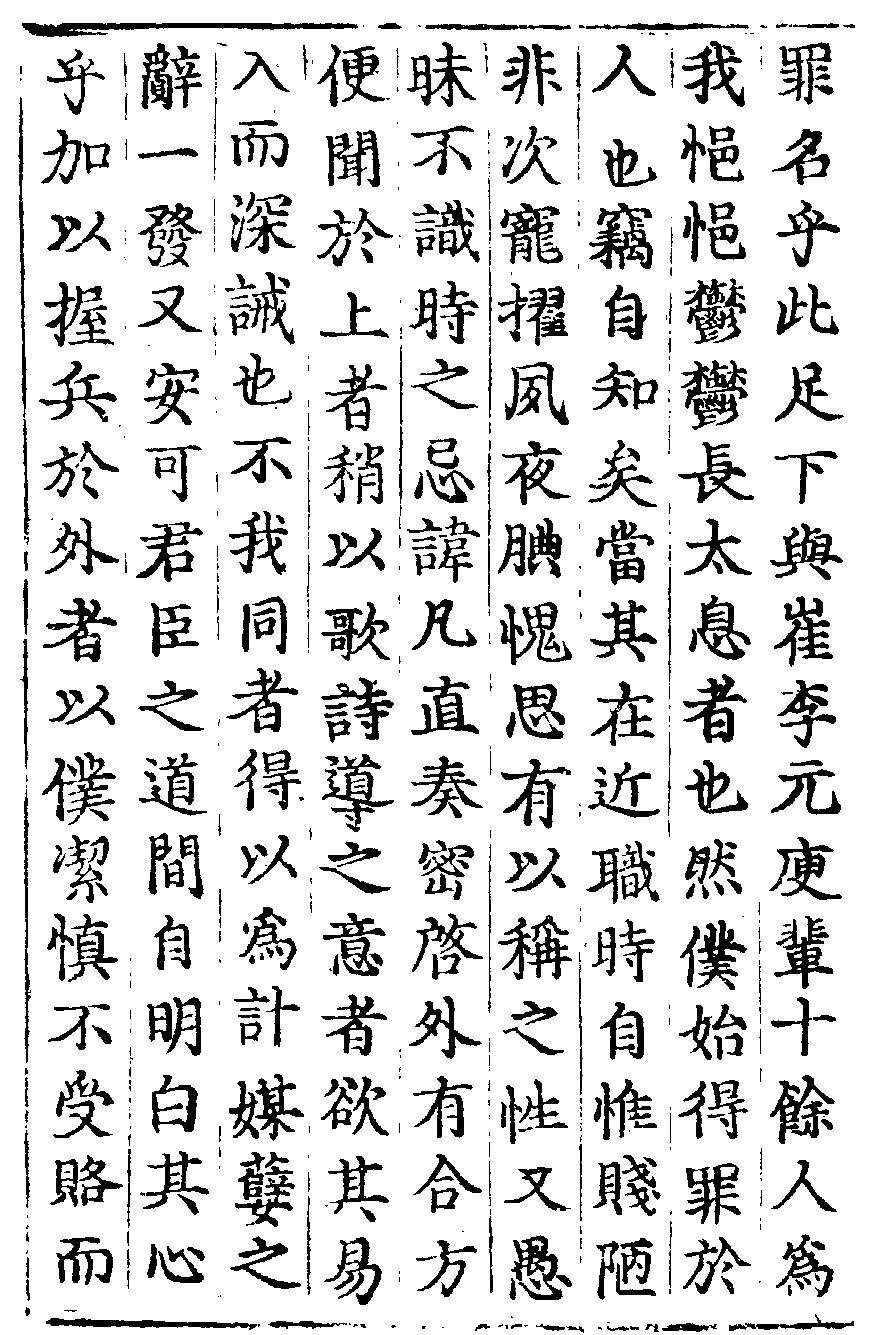 罪名乎此足下與崔李元庾輩十餘人爲
我悒悒鬱鬱長太息者也然僕始得罪於
人也竊自知矣當其在近職時自惟賤陋
非次寵擢夙夜腆愧思有以稱之性又愚
昧不識時之忌諱凡直奏密啓外有合方
便聞於上者稍以歌詩導之意者欲其易
入而深誡也不我同者得以爲計媒糵之
辭一發又安可君臣之道間自明白其心
乎加以握兵於外者以僕潔慎不受賂而